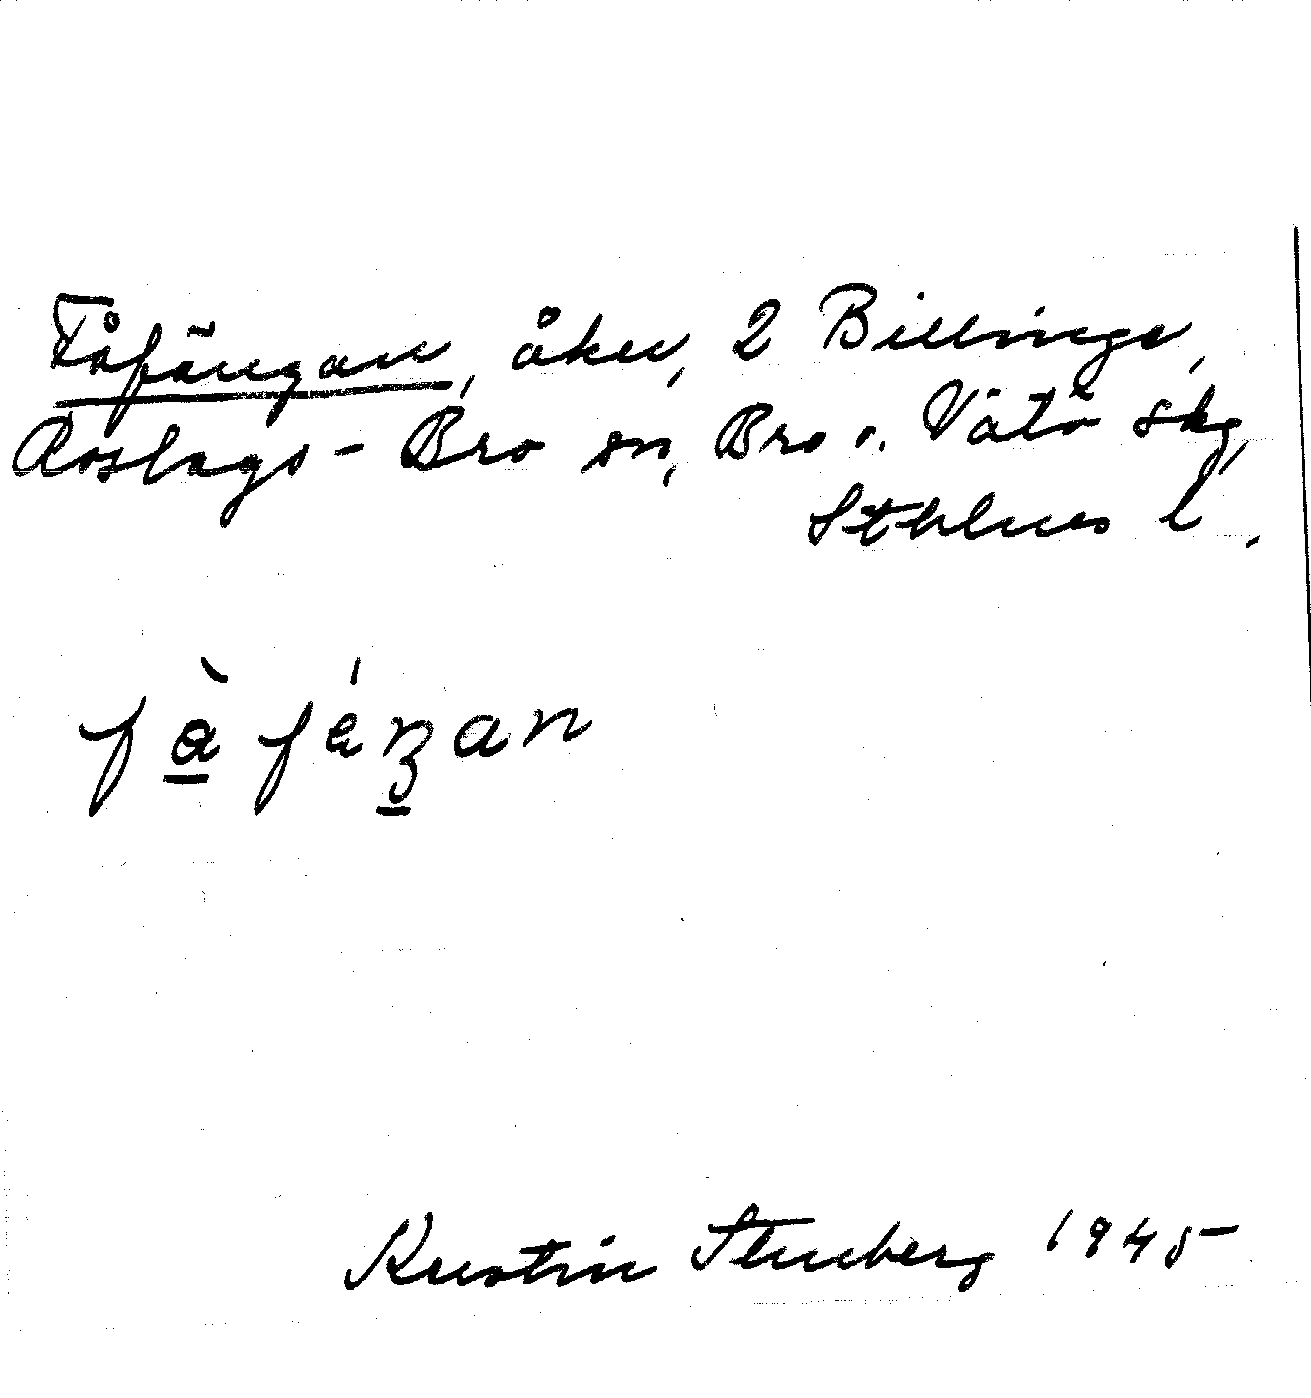 Fåfängan, åker, 2 Billinge,
Roslags-Bro sn, Bro o. Vätö skg,
Sthlms l.
fàfánʒan
Kerstin Stenberg 1945